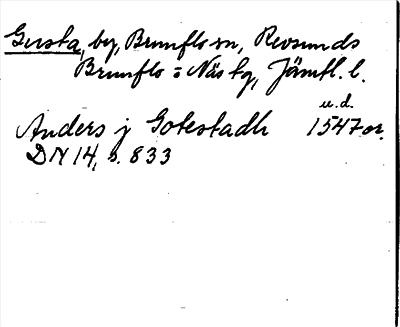 Gusta, by, Brunflo sn, Revsunds
Brunflo = Näs tg, Jämtl. l.
u. d.
Anders j Gotestadh 1547 or.
DN 14, s. 833